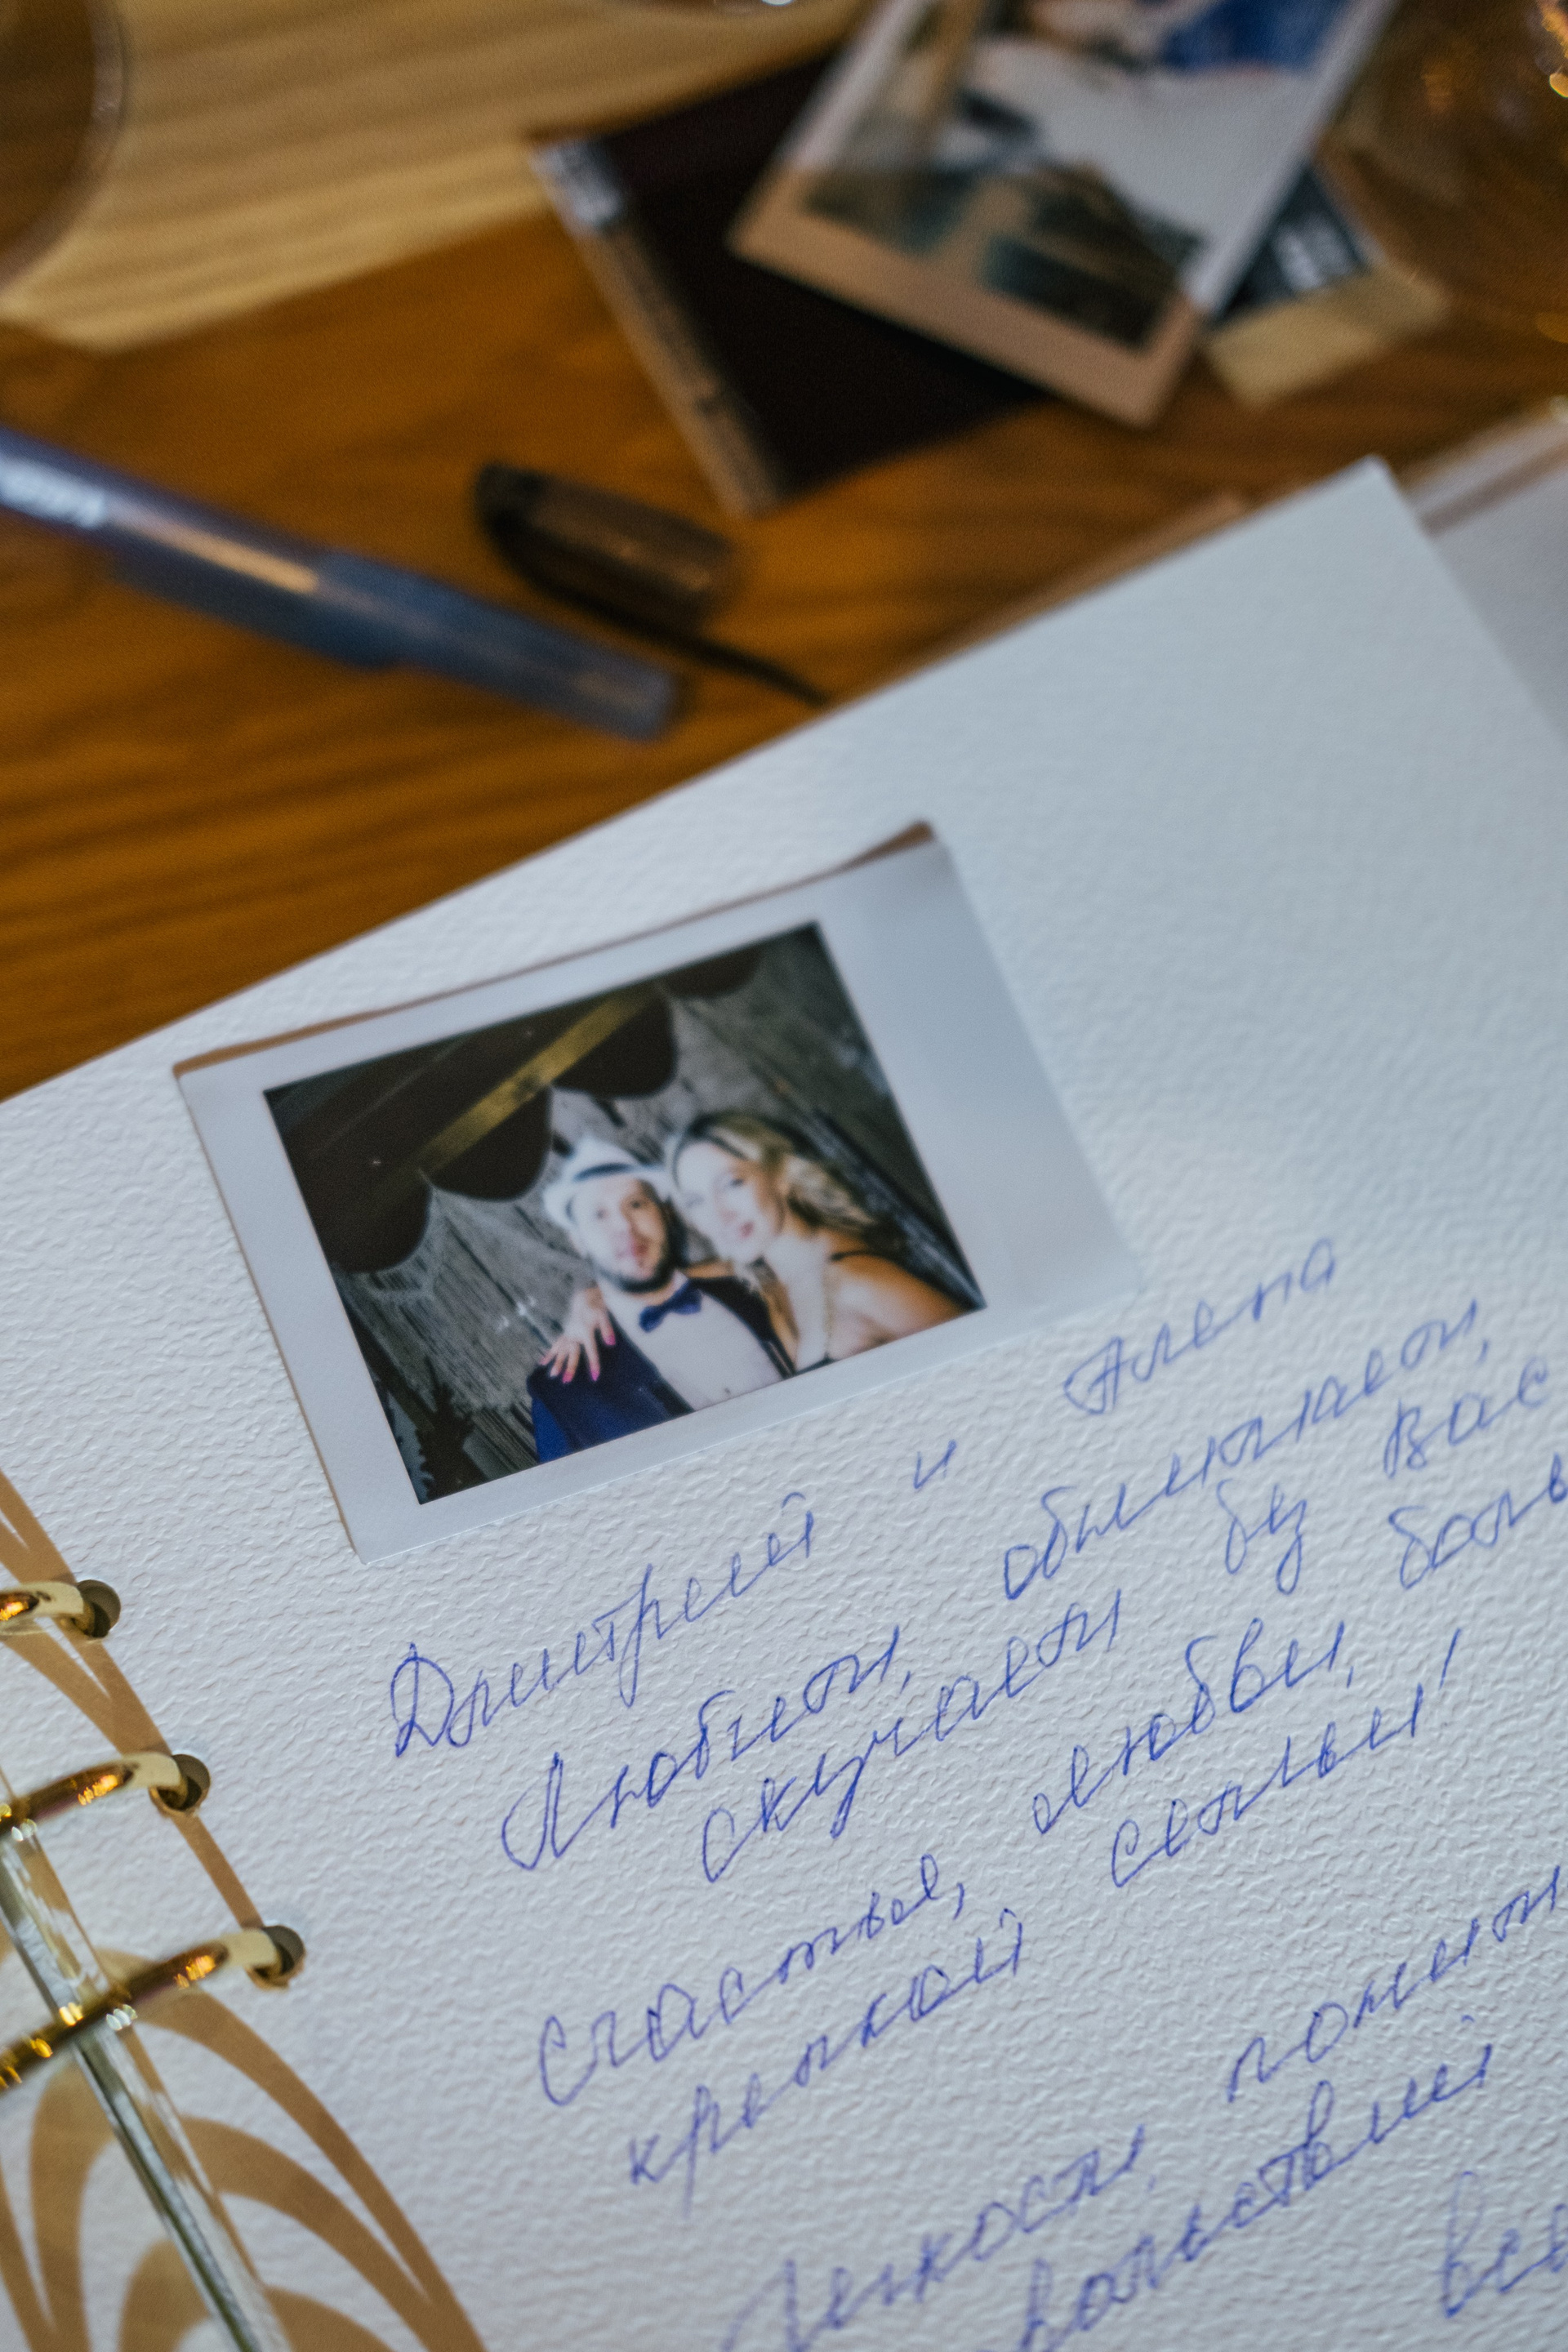 Дмитрий и Алена
Любит, обнимает,
скучает без вас
счастья, любви, боль
крепкой семьи!
Легкости,